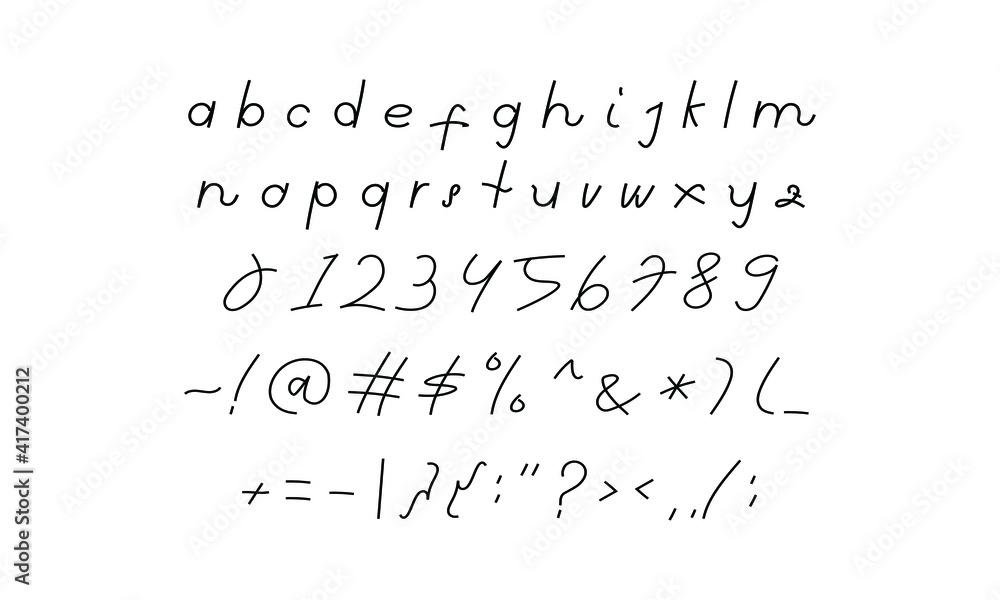 a b c d e f g h i j k l m
n o p q r s t u v w x y z
0 1 2 3 4 5 6 7 8 9
~ ! @ # $ % ^ & * ) ( _
+ = - | } { : " ? > < , . / ;
Adobe Stock | #417400212